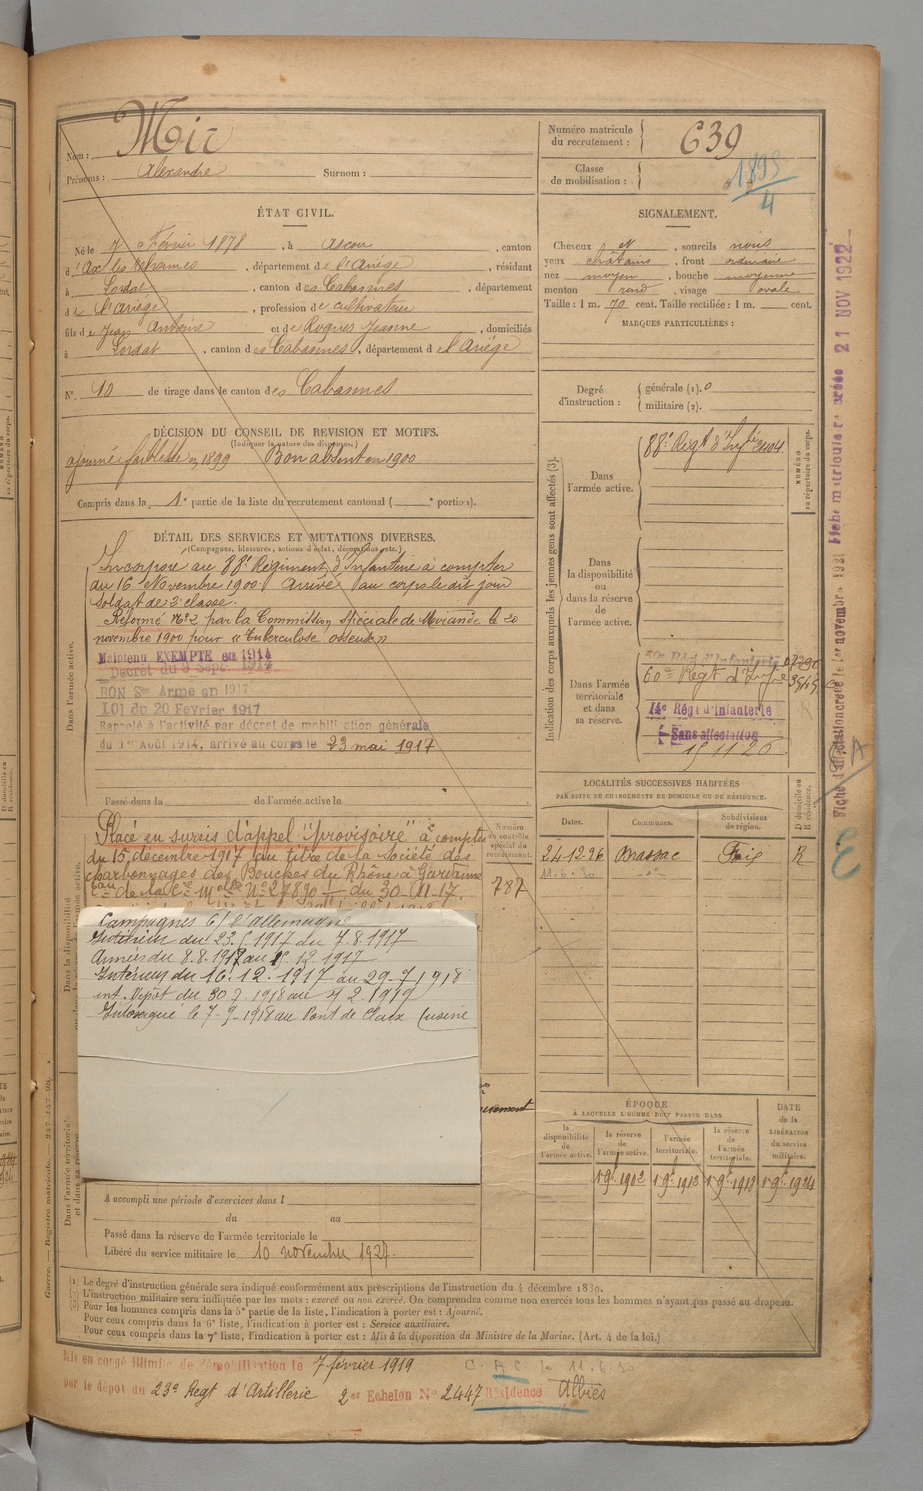 Nom : Mir
Prénoms : Alexandre Surnom :
Numéro matricule du recrutement : 639
Classe de mobilisation : 1895/4
ÉTAT CIVIL.
Né le 7 Février 1878, à Ascou, canton
d'Ax les Thermes, département de l'Ariège, résidant
à Lordat, canton des Cabannes, département
de l'Ariège, profession de cultivateur
fils de Jean Antoine et de Rogues Jeanne, domiciliés
à Lordat, canton des Cabannes, département de l'Ariège
N° 10 de tirage dans le canton des Cabannes
SIGNALEMENT.
Cheveux N, sourcils noirs
yeux chatains, front ordinaire
nez moyen, bouche moyenne
menton rond, visage ovale
Taille : 1 m. 70 cent. Taille rectifiée : 1 m. cent.
MARQUES PARTICULIÈRES :
Degré d'instruction : générale (1). 0
militaire (2).
DÉCISION DU CONSEIL DE REVISION ET MOTIFS.
(Indiquer la nature des dispenses.)
ajourné faiblesse en 1899 Bon absent en 1900
Compris dans la 1e partie de la liste du recrutement cantonal ( e portion).
DÉTAIL DES SERVICES ET MUTATIONS DIVERSES.
(Campagnes, blessures, actions d'éclat, décorations, etc.)
Incorporé au 88e Régiment d'Infanterie à compter
du 16 Novembre 1900. Arrivé au corps le dit jour
soldat de 2e classe.
Réformé N° 2 par la Commission Spéciale de Mirande le 20
novembre 1900 pour « Tuberculose osseuse »
Maintenu EXEMPTE en 1914
Décret du 9 Sept. 1914
BON Sce Armé en 1917
LOI du 20 Février 1917
Rappelé à l'activité par décret de mobilisation générale
du 1er Août 1914, arrivé au corps le 23 mai 1917
Passé dans la de l'armée active le
Dans l'armée active.
Placé en sursis d'appel "provisoire" à compter
du 15 décembre 1917 au titre de la Société des
charbonnages des Bouches du Rhône à Gardanne
N° 27890 du 30.11.17.
Numéro au contrôle spécial du recrutement.
787
Campagnes C/ l'Allemagne
Intérieur du 23.5.1917 au 7.8.1917
Armées du 8.8.1917 au 15.12.1917
Intérieur du 16.12.1917 au 29.7.1918
int. Dépot du 30 7.1918 au 7 2.1919
le 7-9-1918 au Pont de Claix (usine
A accompli une période d'exercices dans l
du au
Passé dans la réserve de l'armée territoriale le
Libéré du service militaire le 10 novembre 1927.
Indication des corps auxquels les jeunes gens sont affectés (3).
Dans l'armée active.
88e Regt d'Infie 3104
NUMÉRO au répertoire du corps.
Dans la disponibilité ou dans la réserve de l'armée active.
Dans l'armée territoriale et dans sa réserve.
Régt d'Infanterie
60e Regt d'Infie
14e Régt d'Infanterie
Sans affectation
LOCALITÉS SUCCESSIVES HABITÉES
PAR SUITE DE CHANGEMENTS DE DOMICILE OU DE RÉSIDENCE.
Dates. Communes. Subdivisions de région. D domicile ou R résidence.
24-12-26 Brassac Foix R
11.6.30
ÉPOQUE
À LAQUELLE L'HOMME DOIT PASSER DANS
la disponibilité de l'armée active.
la réserve de l'armée active.
l'armée territoriale.
la réserve de l'armée territoriale.
DATE de la LIBÉRATION du service militaire.
1 9e 1902 1 9e 1912 1 9e 1918 1 9e 1924
Fiche matriculaire créée 21 NOV 1922
Guerre. — Registre matricule. — 247-147-98.
Le degré d'instruction générale sera indiqué conformément aux prescriptions de l'instruction du 4 décembre 1889.
L'instruction militaire sera indiquée par les mots : exercé ou non exercé. On comprendra comme non exercés tous les hommes n'ayant pas passé au drapeau.
Pour les hommes compris dans la 5e partie de la liste, l'indication à porter est : Ajourné.
Pour ceux compris dans la 6e liste, l'indication à porter est : Service auxiliaire.
Pour ceux compris dans la 7e liste, l'indication à porter est : Mis à la disposition du Ministre de la Marine. (Art. 4 de la loi.)
Mis en congé illimité de démobilisation le 7 février 1919 C.A.C. le 11.6.30
par le dépot du 23e Regt d'Artillerie 2er Echelon N° 2447 Résidence Albiès